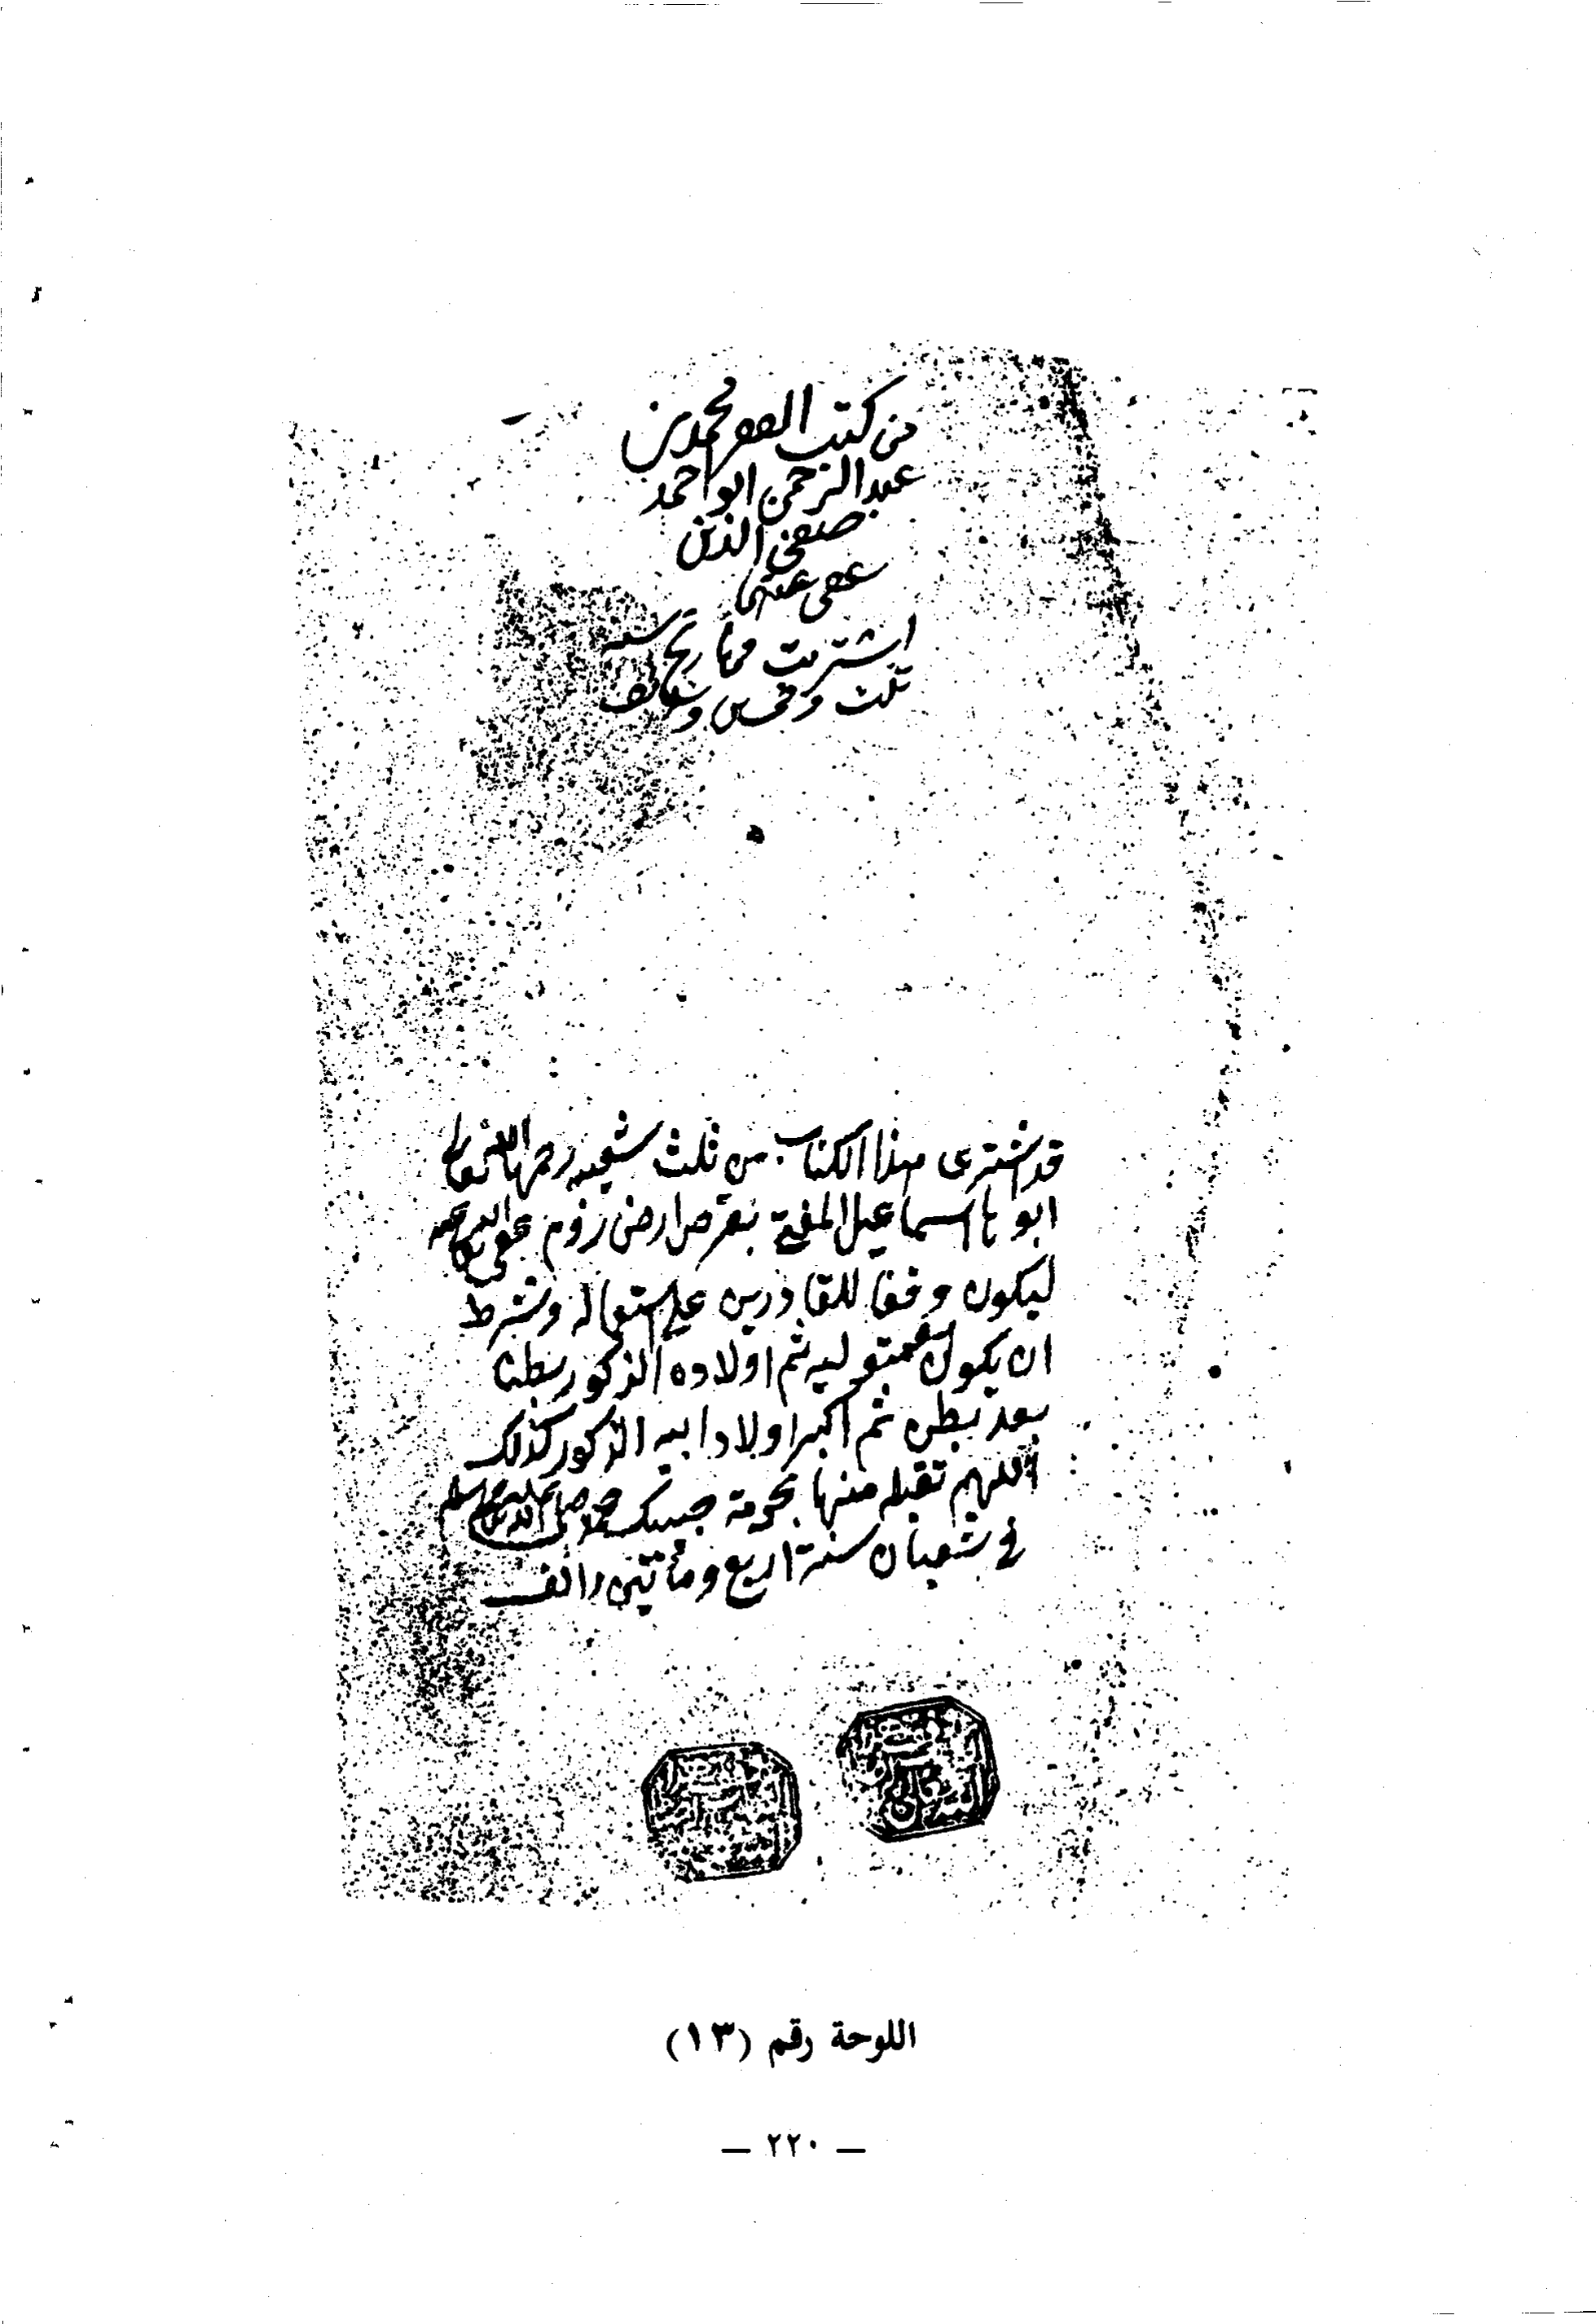 من كتب الفقير محمد بن
عبد الرحمن ابو احمد
صفي الدين
عفى عنهما
اشتريت سنة
ثلث وخمس و
قد اشترى هذا الكتاب من ثلث شقيقه رحمها الله تعالى
ابو اسماعيل المفتي ارض روم عفى عنه
ليكون وقفا للقادرين على استعماله وشرط
ان يكون متوليه ثم اولاده الذكور بطنا
بعد بطن ثم اكبر اولاد ابيه الذكور كذلك
اللهم تقبله منها بحرمة حبيبك محمد صلى الله عليه وسلم
في شعبان سنة اربع ومأتين والف
اللوحة رقم (١٣)
— ٢٢٠ —